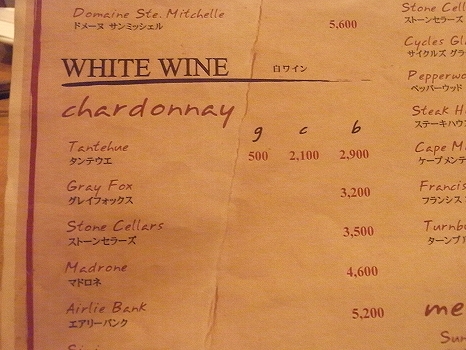 Domaine Ste. Mitchelle
ドメーヌ サンミッシェル 5,600
WHITE WINE 白ワイン
chardonnay
g c b
Tantehue
タンテウエ 500 2,100 2,900
Gray Fox
グレイフォックス 3,200
Stone Cellars
ストーンセラーズ 3,500
Madrone
マドロネ 4,600
Airlie Bank
エアリーバンク 5,200
Stone Cell
ストーンセラーズ
Cycles Gl
サイクルズ グラ
Pepperwo
ペッパーウッド
Steak H
ステーキハウ
Cape M
ケープメンテ
Francis
フランシス
Turnbu
ターンブ
me
Sun